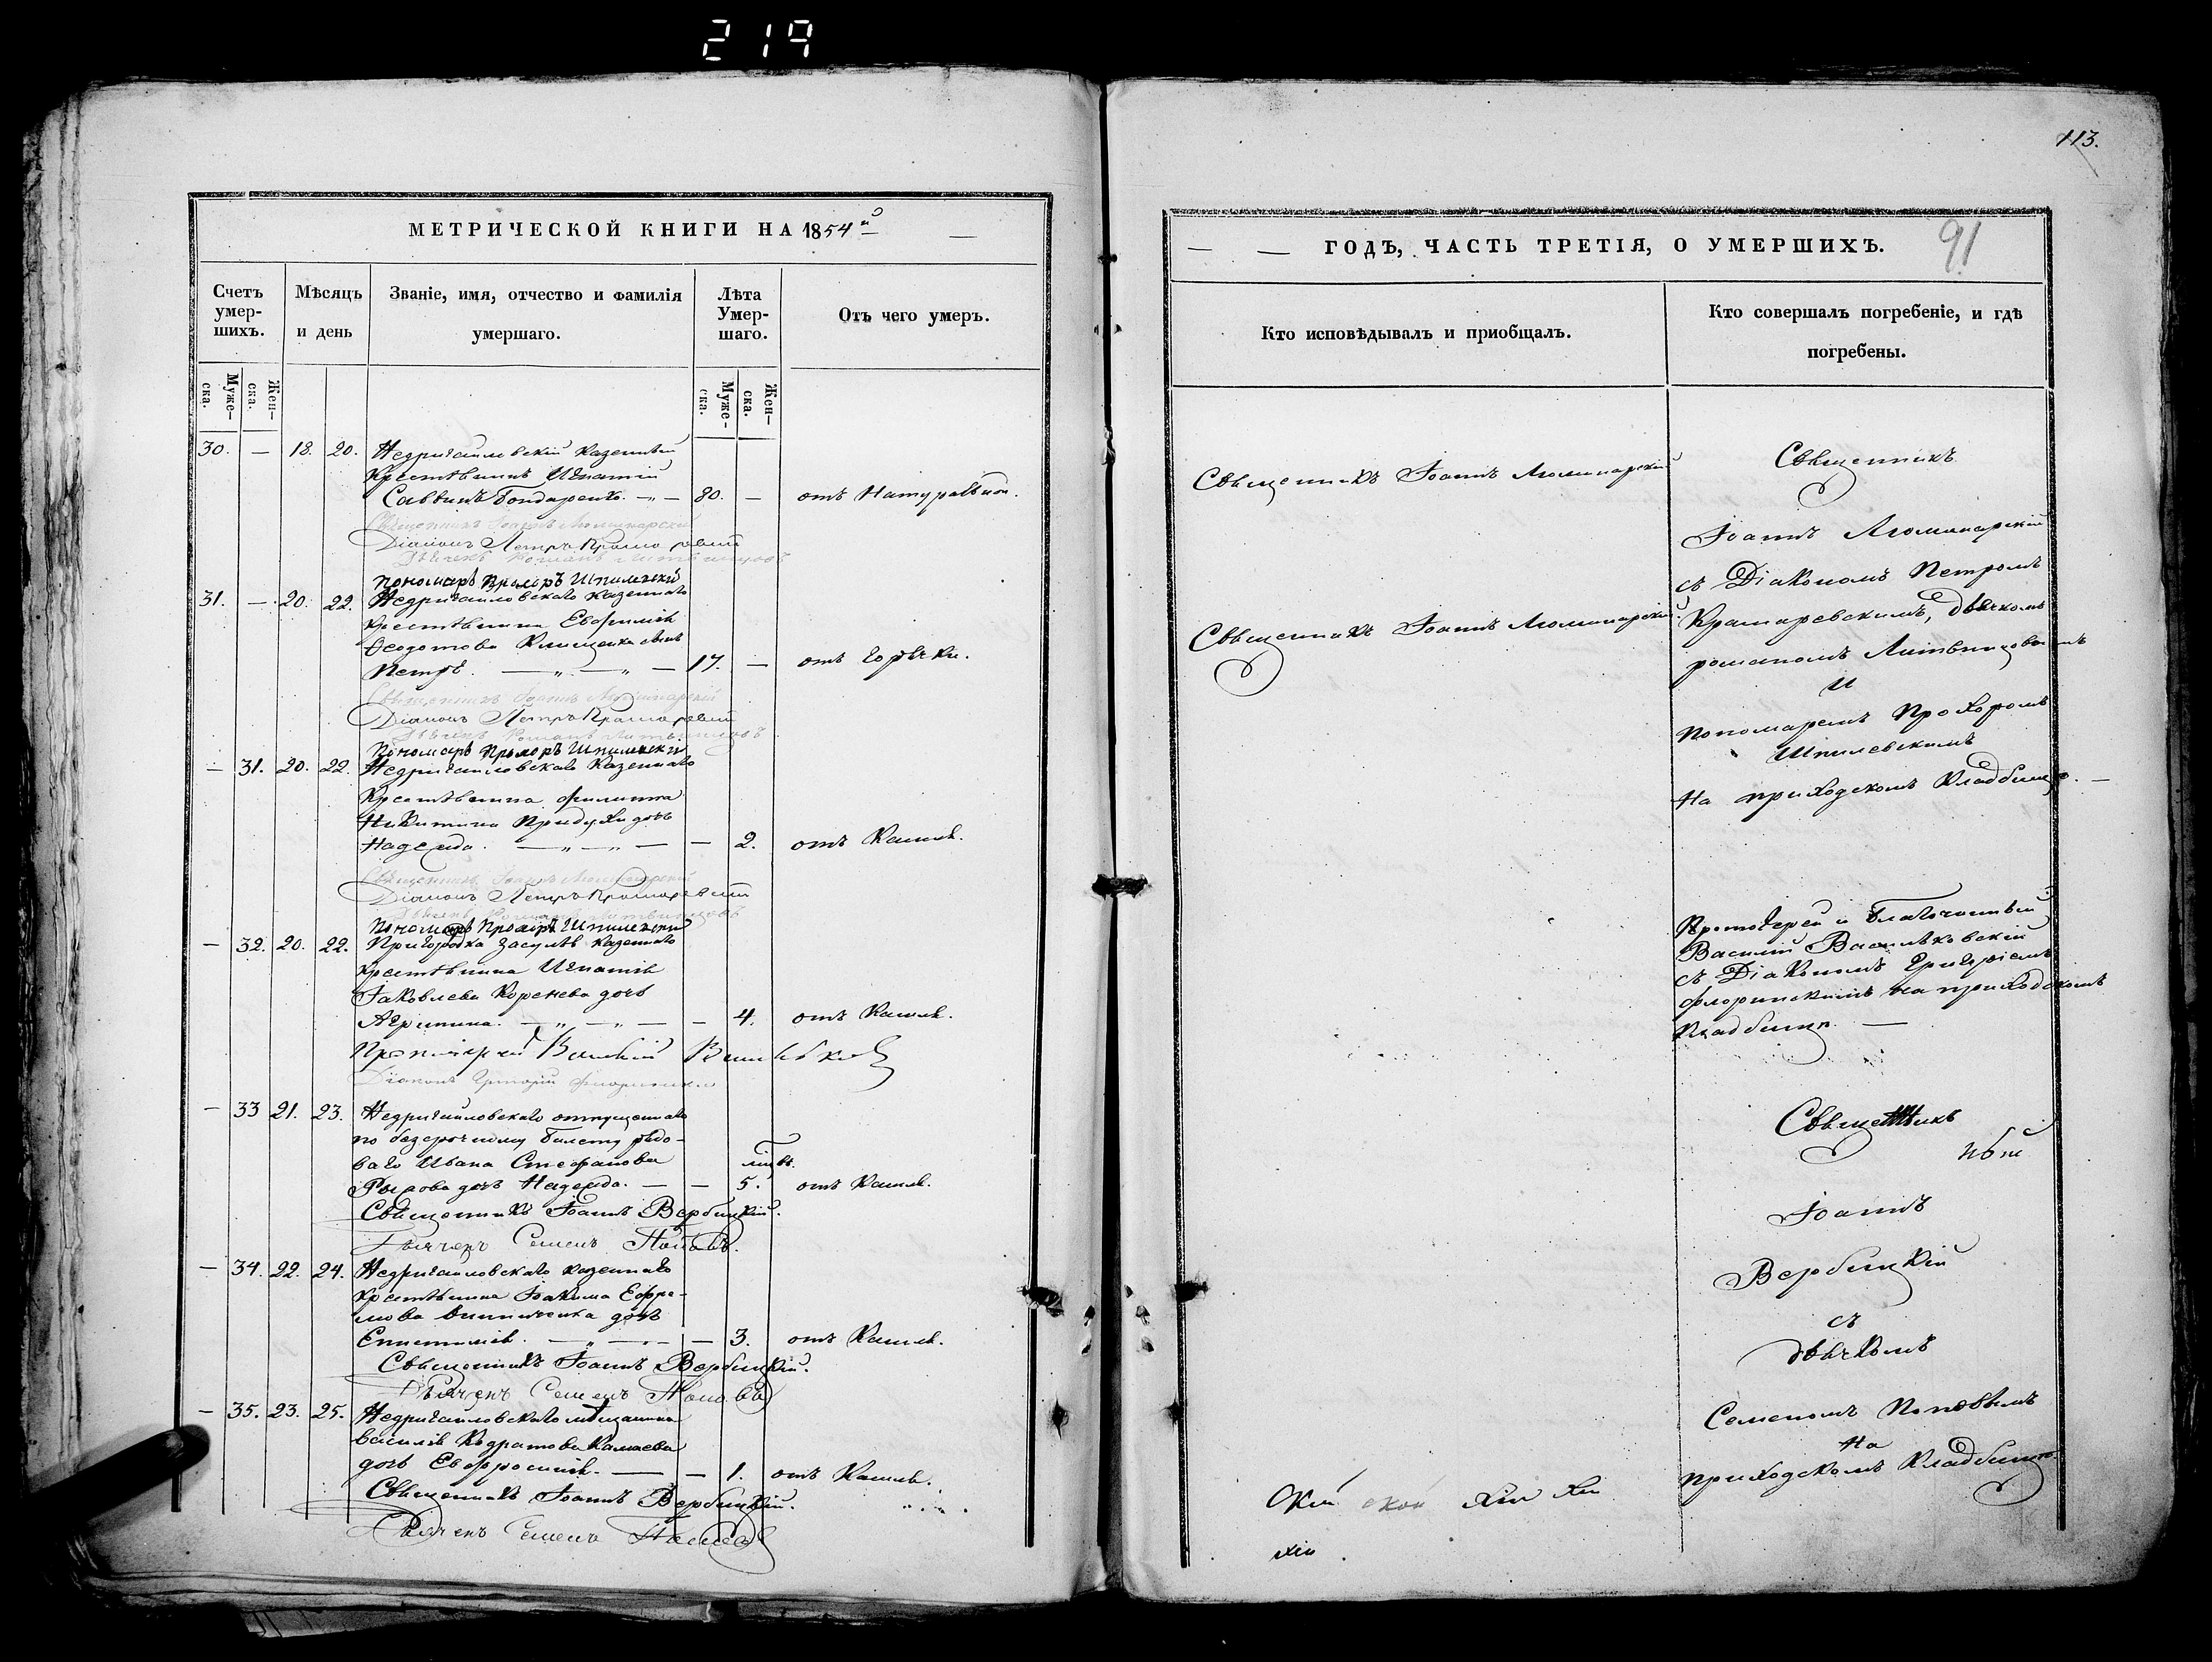 219
113.
МЕТРИЧЕСКОЙ КНИГИ НА 1854й
Счетъ умерших.
Мѣсяцъ и день
Званіе, имя, отчество и фамилія умершаго.
Лѣта Умершаго.
Отъ чего умеръ.
Мужеска.
Женска.
Мужеска.
Женска.
30. — 18. 20. Недригайловскій казенный
крестьянинъ Игнатій
Саввинъ Бондаренко. — 80. — отъ Натуральной.
Священникъ Іоаннъ Люминарскій
Діаконъ Петръ Крамаревскій
Дьячекъ Романъ Литвиновъ
Пономарь Прохоръ Шпилевскій
31. — 20. 22. Недригайловскаго казеннаго
крестьянина Евфимія
Ѳеодотова Клищенка сынъ
Петръ. — „ — „ — 17. — отъ горячки.
Священникъ Іоаннъ Люминарскій
Діаконъ Петръ Крамаревскій
Дьячекъ Романъ Литвиновъ
Пономарь Прохоръ Шпилевскій
— 31. 20. 22. Недригайловскаго казеннаго
крестьянина Филиппа
Никитина дочь
Надежда. — „ — „ — — 2. отъ Кашля.
Священникъ Іоаннъ Люминарскій
Діаконъ Петръ Крамаревскій
Дьячекъ Романъ Литвиновъ
Пономарь Прохоръ Шпилевскій
— 32. 20. 22. Пригородка Засулья казеннаго
крестьянина Игнатія
Іаковлева Коренева дочь
Агрипина. — „ — „ — — 4. отъ Кашля.
Протоіерей Василій Васильковскій
Діаконъ Григорій Флоринскій
— 33 21. 23. Недригайловскаго отпущеннаго
по безсрочному билету рядо-
ваго Ивана Стефанова
дочь Надежда. — — 5. отъ Кашля.
Священникъ Іоаннъ Вербицкій.
Дьячекъ Семенъ Поповъ.
— 34. 22. 24. Недригайловскаго казеннаго
крестьянина Іакима Ефре-
мова дочь
Епистимія. — „ — — 3. отъ Кашля.
Священникъ Іоаннъ Вербицкій.
Дьячекъ Семенъ Поповъ
— 35. 23. 25. Недригайловскаго мѣщанина
Василія Кодратова Камаева
дочь Евфросинія. — — 1. отъ Кашля.
Священникъ Іоаннъ Вербицкій.
Дьячекъ Семенъ Поповъ
ГОДЪ, ЧАСТЬ ТРЕТІЯ, О УМЕРШИХЪ.
91
Кто исповѣдывалъ и пріобщалъ.
Кто совершалъ погребеніе, и гдѣ погребены.
Священникъ Іоаннъ Люминарскій
Священникъ Іоаннъ Люминарскій.
Священникъ
Іоаннъ Люминарскій
съ Діакономъ Петромъ
Крамаревскимъ, дьячкомъ
романомъ Литвиновымъ
и
пономаремъ Прохоромъ
Шпилевскимъ
На приходскомъ Кладбище. —
Протоіерей и Благочинный
Василій Васильковскій
съ Діакономъ Григоріемъ
Флоринскимъ на приходскомъ
Кладбище. —
Священникъ
Іоаннъ
Вербицкій
съ
дьячкомъ
Семеномъ Поповымъ
На
приходскомъ Кладбище.